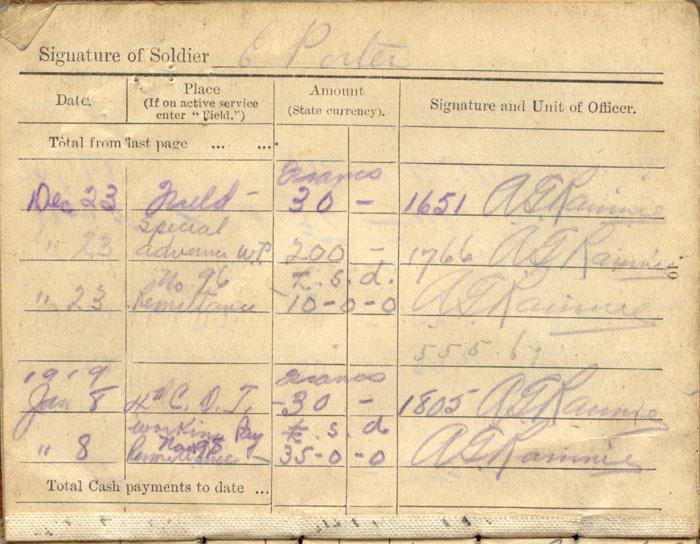 Signature of Soldier E Porter
Date. Place (If on active service enter "Field.") Amount (State currency). Signature and Unit of Officer.
Total from last page ... ....
Francs
Dec 23 Field - 30 - 1651 AG Rainnie
Special
" 23 advance W.P. 200 - 1766 AG Rainnie
No 96 £. s. d.
" 23 Remittance 10-0-0 AG Rainnie
10
555.67
1919 Francs
Jan 8 C. D. T. -30 - 1805 AG Rainnie
Working Pay £. s. d
" 8 No 98 Remittance - 35-0-0 AG Rainnie
Total Cash payments to date ...